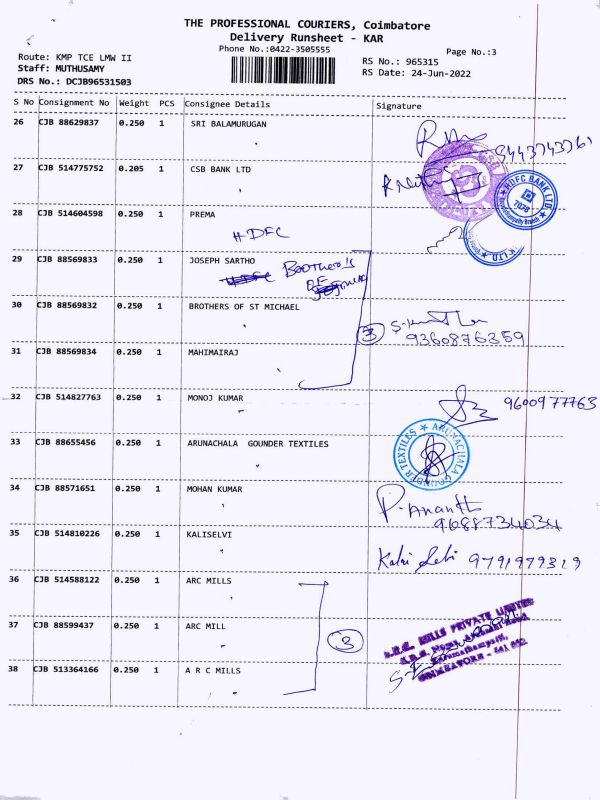 THE PROFESSIONAL COURIERS, Coimbatore
Delivery Runsheet - KAR
Phone No.:0422-3505555
Page No.:3
Route: KMP TCE LMW II
RS No.: 965315
Staff: MUTHUSAMY
RS Date: 24-Jun-2022
DRS No.: DCJB96531503
S No Consignment No Weight PCS Consignee Details Signature
26 CJB 88629837 0.250 1 SRI BALAMURUGAN
9443743761
27 CJB 514775752 0.205 1 CSB BANK LTD
HDFC BANK LTD
7078
28 CJB 514604598 0.250 1 PREMA
HDFC
K LTD
29 CJB 88569833 0.250 1 JOSEPH SARTHO
Brother's
OF
30 CJB 88569832 0.250 1 BROTHERS OF ST MICHAEL
3
9360876359
31 CJB 88569834 0.250 1 MAHIMAIRAJ
32 CJB 514827763 0.250 1 MONOJ KUMAR
9600977763
33 CJB 88655456 0.250 1 ARUNACHALA GOUNDER TEXTILES
ARUNACHALA GOUNDER TEXTILES
34 CJB 88571651 0.250 1 MOHAN KUMAR
P. Ananth
9688734034
35 CJB 514810226 0.250 1 KALISELVI
Kalai Selvi 9791979319
36 CJB 514588122 0.250 1 ARC MILLS
37 CJB 88599437 0.250 1 ARC MILL
3
A.R.C. MILLS PRIVATE LIMITED
COIMBATORE - 641
38 CJB 513364166 0.250 1 A R C MILLS